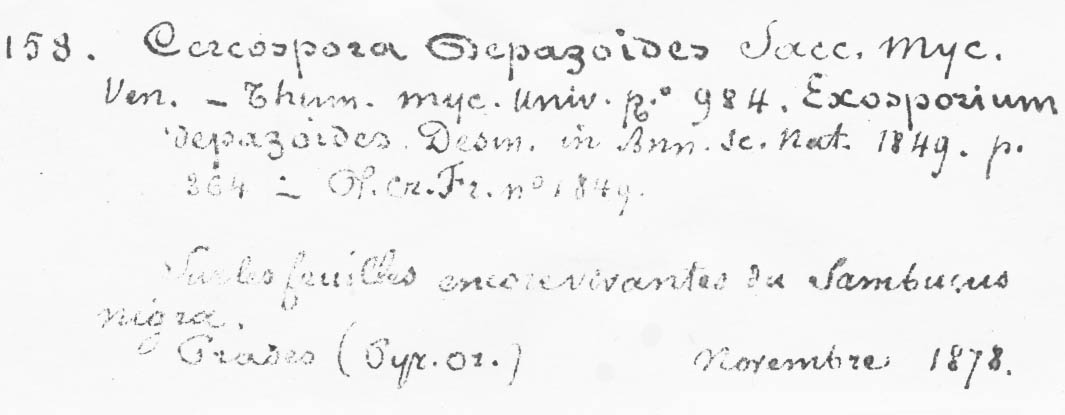 158. Cercospora Depazoides Sacc. Myc.
Ven. – Thum. myc. univ. n.º 984. Exosporium
depazoides. Desm. in Ann. sc. Nat. 1849. p.
364 – Pl. cr. Fr. nº 1849.
Sur les feuilles encore vivantes du Sambucus
nigra.
Prades (Pyr. or.) Novembre 1878.